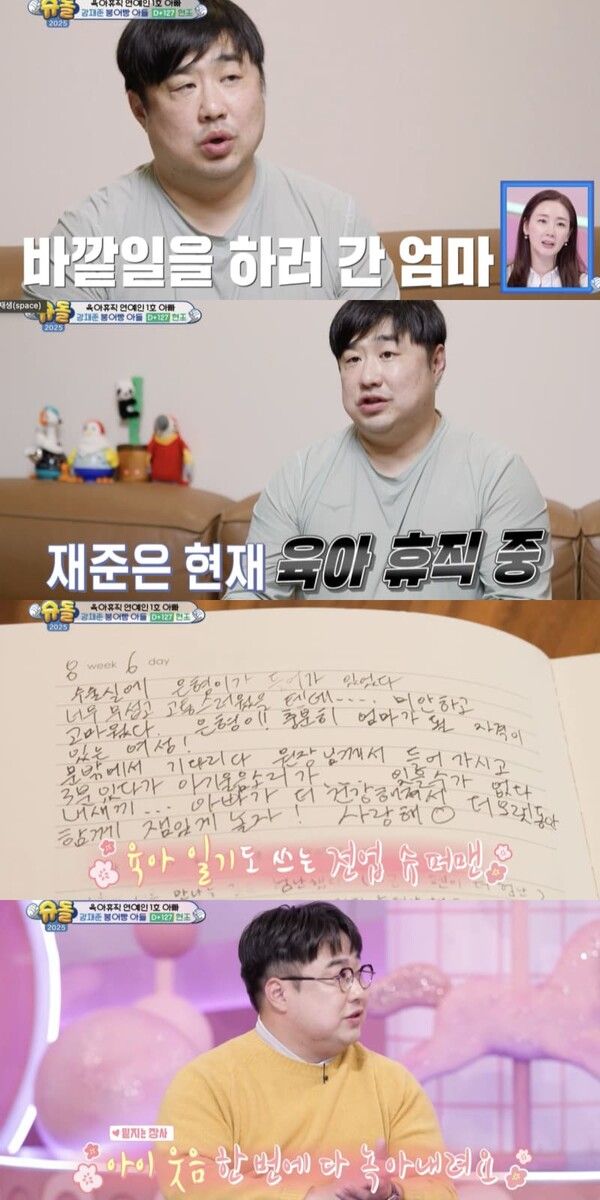 슈돌
2025
육아휴직 연예인 1호 아빠
강재준 붕어빵 아들 D+127 현조
바깥일을 하러 간 엄마
재생(space)
슈돌
2025
육아휴직 연예인 1호 아빠
강재준 붕어빵 아들 D+127 현조
재준은 현재 육아 휴직 중
슈돌
2025
육아휴직 연예인 1호 아빠
강재준 붕어빵 아들 D+127 현조
8 week 6 day
수술실에 은형이가 들어가 있었다
너무 무섭고 고통스러웠을 텐데.... 미안하고
고마웠다. 은형이!! 충분히 엄마가 될 자격이
있는 여성!
문밖에서 기다리다 원장님께서 들어가시고
3분 있다가 아기울음소리가 잊을수가 없다
내새끼... 아빠가 더 건강해져서 더 오랫동안
함께 재밌게 놀자! 사랑해
육아 일기도 쓰는 전업 슈퍼맨
슈돌
2025
육아휴직 연예인 1호 아빠
강재준 붕어빵 아들 D+127 현조
밑지는 장사
아이 웃음 한 번에 다 녹아내려요